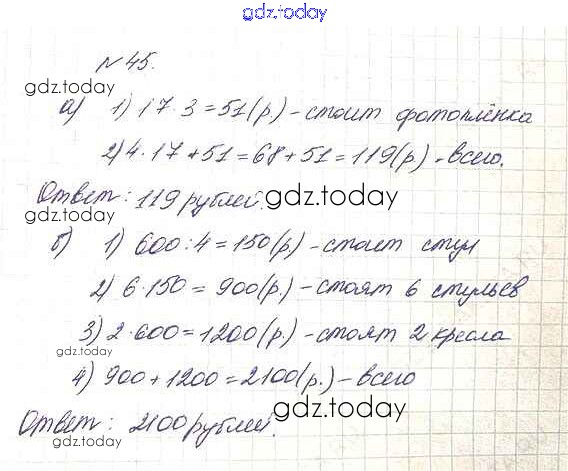 gdz.today
№ 45.
gdz.today
а) 1) 17 · 3 = 51 (р) - стоит фотоплёнка
2) 4 · 17 + 51 = 68 + 51 = 119 (р) - всего.
Ответ: 119 рублей. gdz.today
gdz.today
б) 1) 600 : 4 = 150 (р) - стоит стул
2) 6 · 150 = 900 (р.) - стоят 6 стульев
3) 2 · 600 = 1200 (р.) - стоят 2 кресла
gdz.today
4) 900 + 1200 = 2100 (р.) - всего
Ответ: 2100 рублей. gdz.today
gdz.today